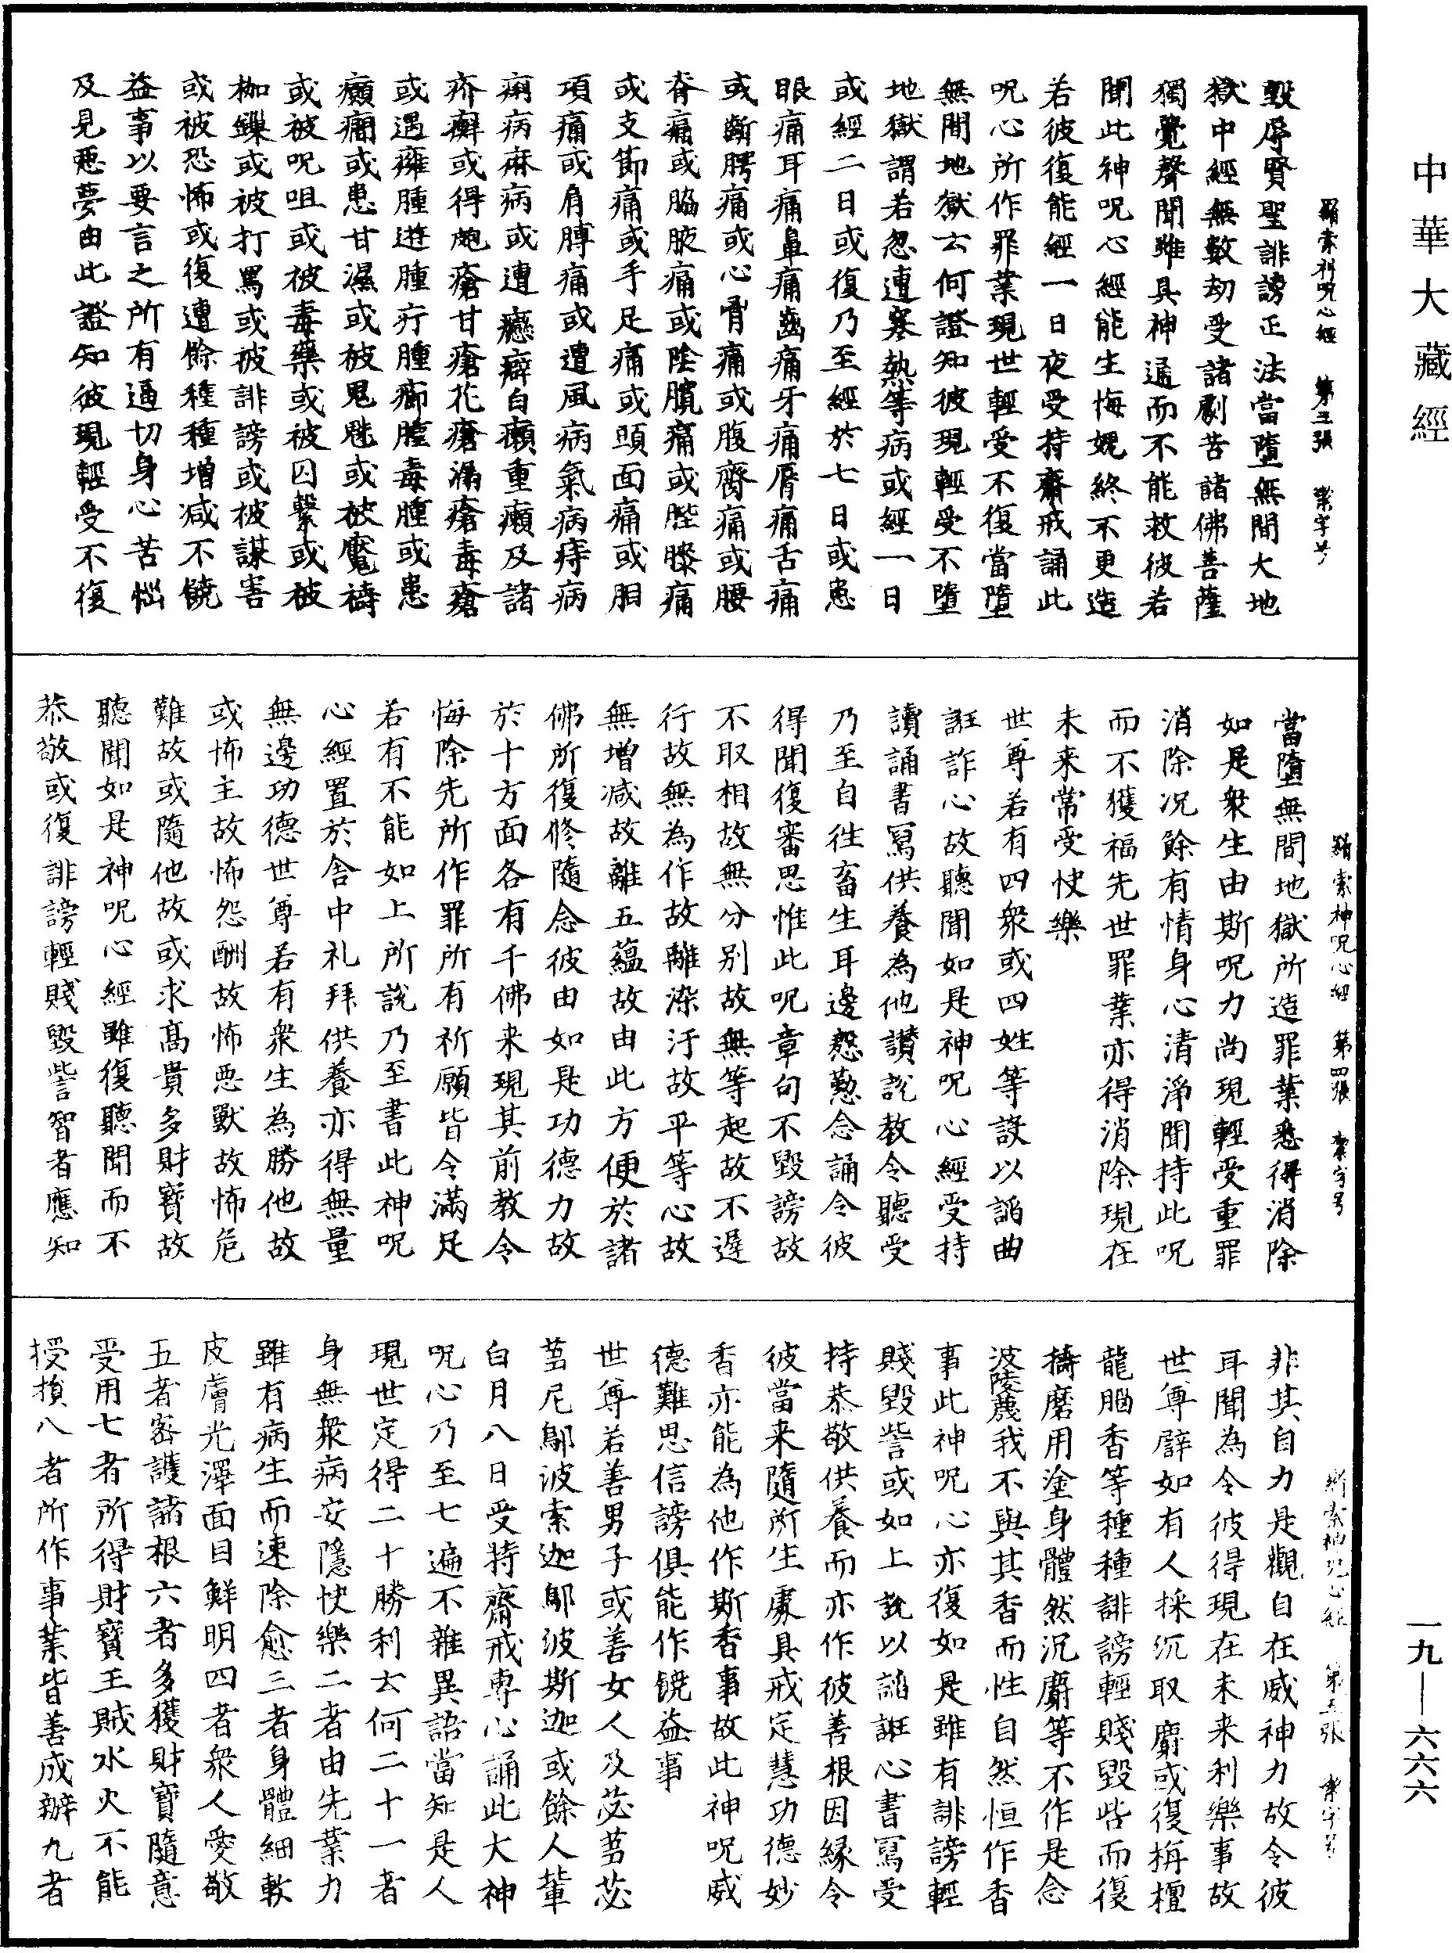 中華大藏經
羂索神呪心經 第三張 絜字号
毀辱賢聖誹謗正法當墮無間大地
獄中經無數劫受諸劇苦諸佛菩薩
獨覺聲聞雖具神通而不能救彼若
聞此神呪心經能生悔媿終不更造
若彼復能經一日夜受持齋戒誦此
呪心所作罪業現世輕受不復當墮
無間地獄云何證知彼現輕受不墮
地獄謂若忽遭寒熱等病或經一日
或經二日或復乃至經於七日或患
眼痛耳痛鼻痛齒痛牙痛脣痛舌痛
或斷腭痛或心胷痛或腹齊痛或腰
脊痛或脇腋痛或陰臗痛或髀膝痛
或支節痛或手足痛或頭面痛或胭
項痛或肩膊痛或遭風病氣病痔病
痢病痳病或遭癮癖白癩重癩及諸
疥癬或得皰瘡甘瘡花瘡漏瘡毒瘡
或遇癰腫遊腫疔腫癤腫毒腫或患
癲癎或患甘濕或被鬼魅或被魘禱
或被呪咀或被毒藥或被囚繫或被
枷鏁或被打罵或被誹謗或被謀害
或被恐怖或復遭餘種種增減不饒
益事以要言之所有逼切身心苦惱
及見惡夢由此證知彼現輕受不復
羂索神呪心經 第四張 絜字号
當墮無間地獄所造罪業悉得消除
如是衆生由斯呪力尚現輕受重罪
消除況餘有情身心清淨聞持此呪
而不獲福先世罪業亦得消除現在
未来常受快樂
世尊若有四衆或四姓等設以諂曲
誑詐心故聽聞如是神呪心經受持
讀誦書寫供養為他讃說教令聽受
乃至自往畜生耳邊慇懃念誦令彼
得聞復審思惟此呪章句不毀謗故
不取相故無分別故無等起故不遲
行故無為作故離染汙故平等心故
無增减故離五蘊故由此方便於諸
佛所復修隨念彼由如是功德力故
於十方面各有千佛来現其前教令
悔除先所作罪所有祈願皆令滿足
若有不能如上所說乃至書此神呪
心經置於舍中礼拜供養亦得無量
無邊功德世尊若有衆生為勝他故
或怖主故怖怨酬故怖惡獸故怖危
難故或隨他故或求高貴多財寶故
聽聞如是神呪心經雖復聽聞而不
恭敬或復誹謗輕賤毀訾智者應知
羂索神呪心經 第五張 絜字号
非其自力是觀自在威神力故令彼
耳聞為令彼得現在未来利樂事故
世尊譬如有人採沉取麝或復栴檀
龍腦香等種種誹謗輕賤毀呰而復
擣磨用塗身體然沉麝等不作是念
波陵蔑我不與其香而性自然恒作香
事此神呪心亦復如是雖有誹謗輕
賤毀訾或如上說以諂誑心書寫受
持恭敬供養而亦作彼善根因緣令
彼當来隨所生處具戒定慧功德妙
香亦能為他作斯香事故此神呪威
德難思信謗俱能作饒益事
世尊若善男子或善女人及苾芻苾
芻尼鄔波索迦鄔波斯迦或餘人輩
白月八日受持齋戒專心誦此大神
呪心乃至七遍不雜異語當知是人
現世定得二十勝利云何二十一者
身無衆病安隱快樂二者由先業力
雖有病生而速除愈三者身體細軟
皮膚光澤面目鮮明四者衆人愛敬
五者密護諸根六者多獲財寶隨意
受用七者所得財寶王賊水火不能
授損八者所作事業皆善成辦九者
一九—六六六